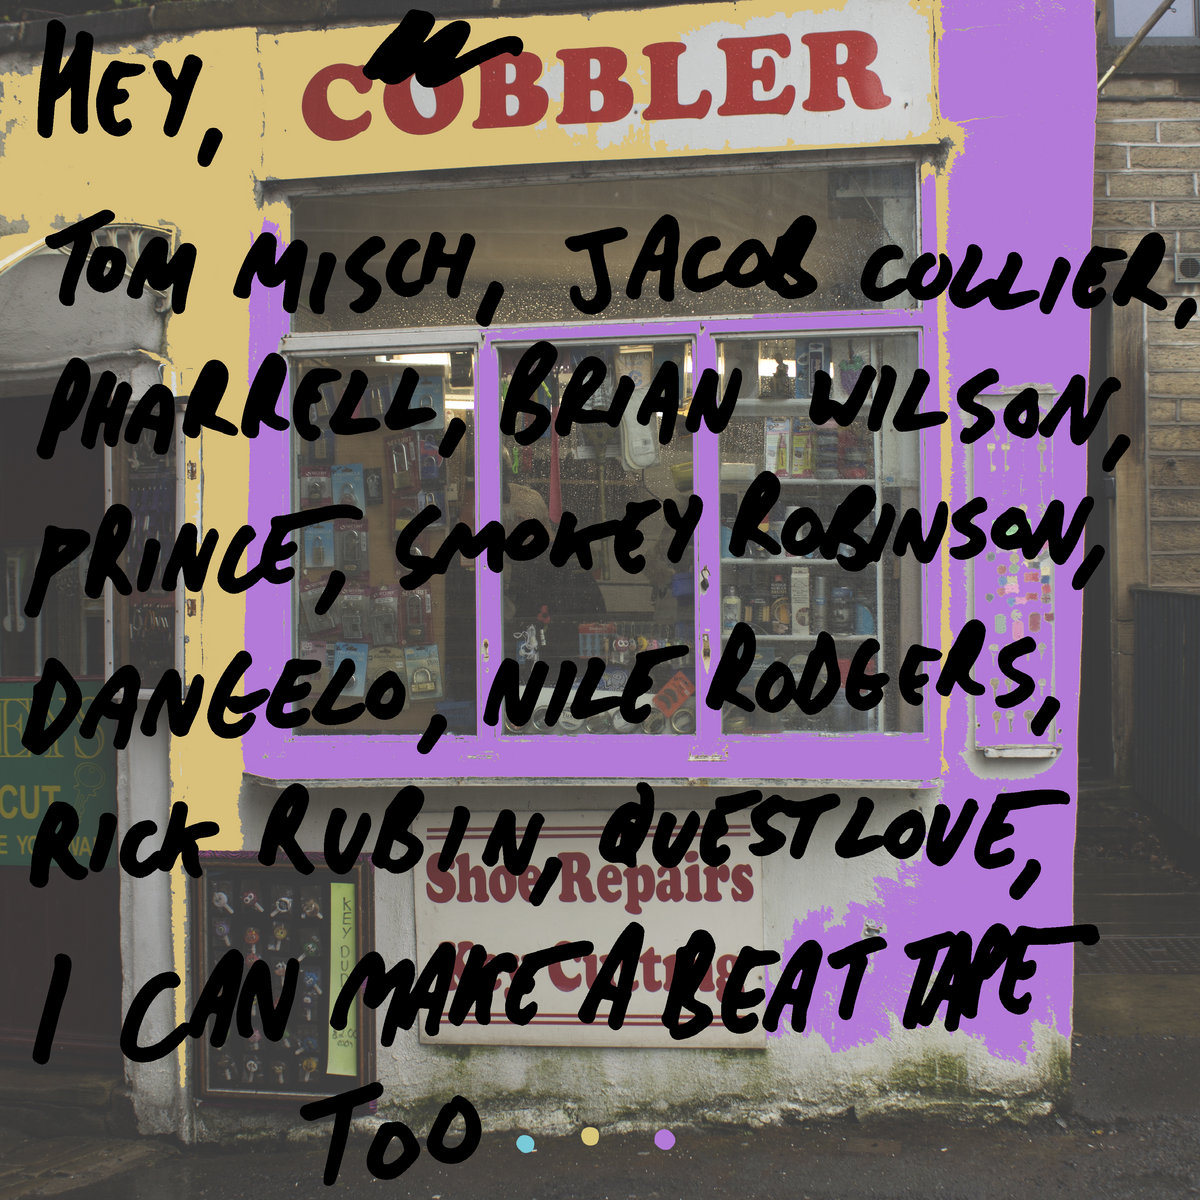 HEY,
COBBLER
TOM MISCH, JACOB COLLIER,
PHARRELL, BRIAN WILSON,
PRINCE, SMOKEY ROBINSON,
DANGELO, NILE RODGERS,
RICK RUBIN, QUESTLOVE,
CUT
Shoe Repairs
I CAN MAKE A BEAT TAPE
Key Cutting
TOO